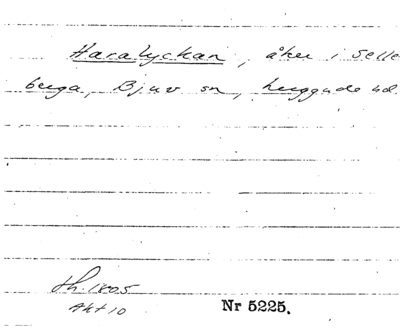 Haralyckan, åker i Selle
berga, Bjuv sn, Luggude hd.
sk. 1805
Akt 10
Nr 5225.